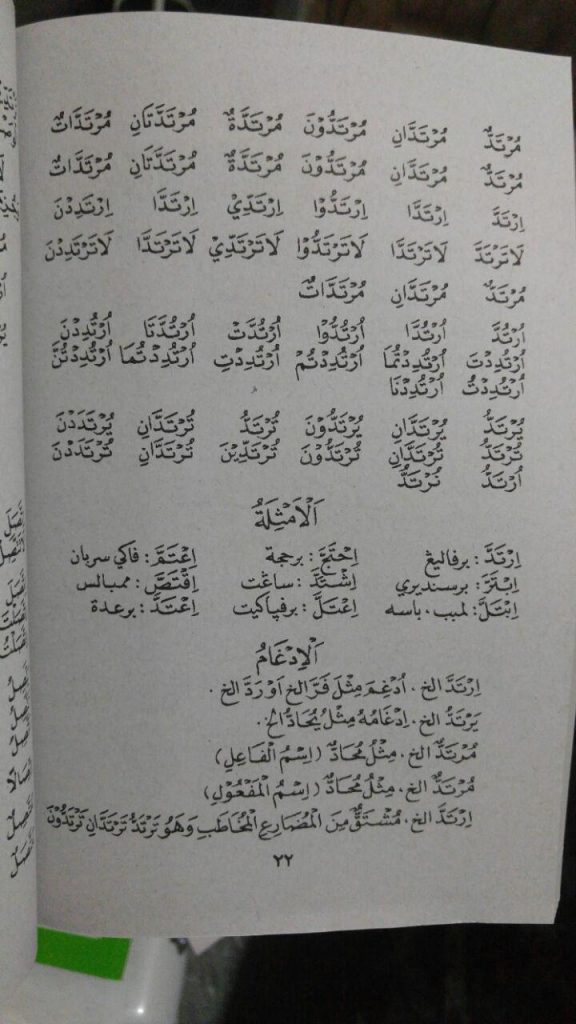 مُرْتَدٌّ مُرْتَدَّانِ مُرْتَدُّوْنَ مُرْتَدَّةٌ مُرْتَدَّتَانِ مُرْتَدَّاتٌ
مُرْتَدٌّ مُرْتَدَّانِ مُرْتَدُّوْنَ مُرْتَدَّةٌ مُرْتَدَّتَانِ مُرْتَدَّاتٌ
اِرْتَدَّ اِرْتَدَّا اِرْتَدُّوْا اِرْتَدِّيْ اِرْتَدَّا اِرْتَدِدْنَ
لَاتَرْتَدَّ لَاتَرْتَدَّا لَاتَرْتَدُّوْا لَاتَرْتَدِّيْ لَاتَرْتَدَّا لَاتَرْتَدِدْنَ
مُرْتَدٌّ مُرْتَدَّانِ مُرْتَدَّاتٌ
اُرْتُدَّ اُرْتُدَّا اُرْتُدُّوْا اُرْتُدَّتْ اُرْتُدَّتَا اُرْتُدِدْنَ
اُرْتُدِدْتَ اُرْتُدِدْتُمَا اُرْتُدِدْتُمْ اُرْتُدِدْتِ اُرْتُدِدْتُمَا اُرْتُدِدْتُنَّ
اُرْتُدِدْتُ اُرْتُدِدْنَا
يُرْتَدُّ يُرْتَدَّانِ يُرْتَدُّوْنَ تُرْتَدُّ تُرْتَدَّانِ يُرْتَدَدْنَ
تُرْتَدُّ تُرْتَدَّانِ تُرْتَدُّوْنَ تُرْتَدِّيْنَ تُرْتَدَّانِ تُرْتَدَدْنَ
اُرْتَدُّ نُرْتَدُّ
اَلْاَمْثِلَةُ
اِرْتَدَّ : برفاليڠ اِحْتَجَّ : برحجة اِعْتَمَّ : فاكي سربان
اِبْتَزَّ : برسنديري اِشْتَدَّ : ساڠت اِقْتَصَّ : ممبالس
اِبْتَلَّ : لمبب . باسه اِعْتَلَّ : برفپاكيت اِعْتَدَّ : برعدة
اَلْاِدْغَامُ
اِرْتَدَّ الخ . اُدْغِمَ مِثْلَ فَرَّ الخ اَوْ رَدَّ الخ .
يَرْتَدُّ الخ . اِدْغَامُهُ مِثْلُ يُحَادُّ الخ .
مُرْتَدٌّ الخ . مِثْلُ مُحَادٌّ (اِسْمُ الْفَاعِلِ)
مُرْتَدٌّ الخ . مِثْلُ مُحَادٌّ (اِسْمُ الْمَفْعُوْلِ)
اِرْتَدَّ الخ . مُشْتَقٌّ مِنَ الْمُضَارِعِ الْمُخَاطَبِ وَهُوَ تَرْتَدُّ تَرْتَدَّانِ تَرْتَدُّوْنَ
٢٢